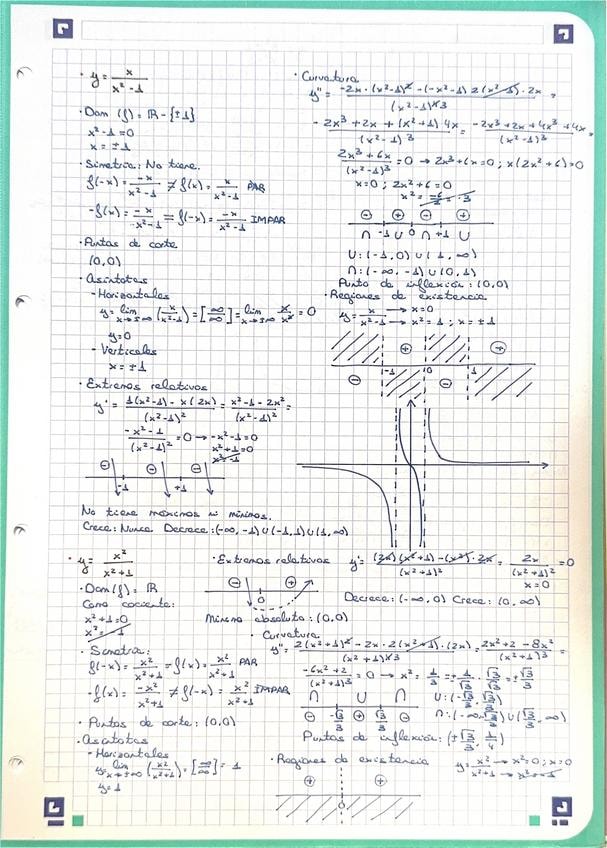 · y = x / (x² - 1)
· Dom (f) = ℝ - {±1}
x² - 1 = 0
x = ±1
· Simetría: No tiene.
f(-x) = -x / (x² - 1) ≠ f(x) = x / (x² - 1) PAR
-f(x) = -x / (x² - 1) = f(-x) = -x / (x² - 1) IMPAR
· Puntos de corte
(0,0)
· Asíntotas
- Horizontales
y = lim x→±∞ (x / (x² - 1)) = [∞/∞] = lim x→±∞ x / x² = 0
y = 0
- Verticales
x = ±1
· Extremos relativos
y' = (1(x² - 1) - x(2x)) / (x² - 1)² = (x² - 1 - 2x²) / (x² - 1)² =
(-x² - 1) / (x² - 1)² = 0 → -x² - 1 = 0
x² + 1 = 0
x² = -1
⊖ ⊖ ⊖
-1 +1
No tiene máximos ni mínimos.
Crece: Nunca Decrece: (-∞, -1) ∪ (-1, 1) ∪ (1, ∞)
· Curvatura
y'' = (-2x · (x² - 1)² - (-x² - 1) 2(x² - 1) · 2x) / (x² - 1)⁴³ =
(-2x³ + 2x + (x² + 1) 4x) / (x² - 1)³ = (-2x³ + 2x + 4x³ + 4x) / (x² - 1)³ =
(2x³ + 6x) / (x² - 1)³ = 0 → 2x³ + 6x = 0 ; x(2x² + 6) = 0
x = 0 ; 2x² + 6 = 0
x² = -6/2 = -3
⊖ ⊕ ⊖ ⊕
∩ -1 ∪ 0 ∩ +1 ∪
∪: (-1, 0) ∪ (1, ∞)
∩: (-∞, -1) ∪ (0, 1)
Punto de inflexión: (0,0)
· Regiones de existencia
y = x / (x² - 1) → x = 0
→ x² = 1 ; x = ±1
⊕ ⊕
-1 0 1
⊖ ⊖
· y = x² / (x² + 1)
· Dom (f) = ℝ
Como cociente:
x² + 1 = 0
x² = -1
· Simetría:
f(-x) = x² / (x² + 1) = f(x) = x² / (x² + 1) PAR
-f(x) = -x² / (x² + 1) ≠ f(-x) = x² / (x² + 1) IMPAR
· Puntos de corte: (0,0)
· Asíntotas
- Horizontales
y = lim x→±∞ (x² / (x² + 1)) = [∞/∞] = 1
y = 1
· Extremos relativos
y' = ((2x)(x² + 1) - (x²) · 2x) / (x² + 1)² = 2x / (x² + 1)² = 0
x = 0
⊖ ⊕
0
Decrece: (-∞, 0) Crece: (0, ∞)
Mínimo absoluto: (0,0)
· Curvatura
y'' = (2(x² + 1)² - 2x · 2(x² + 1) · (2x)) / (x² + 1)⁴³ = (2x² + 2 - 8x²) / (x² + 1)³ =
(-6x² + 2) / (x² + 1)³ = 0 → x² = 1/3 = ± 1/√3 · √3/√3 = ± √3/3
∩ ∪ ∩
⊖ -√3/3 ⊕ √3/3 ⊖
∪: (-√3/3, √3/3)
∩: (-∞, -√3/3) ∪ (√3/3, ∞)
Puntos de inflexión: (±√3/3, 1/4)
· Regiones de existencia
y = x² / (x² + 1) → x² = 0 ; x = 0
→ x² = -1
⊕ ⊕
0